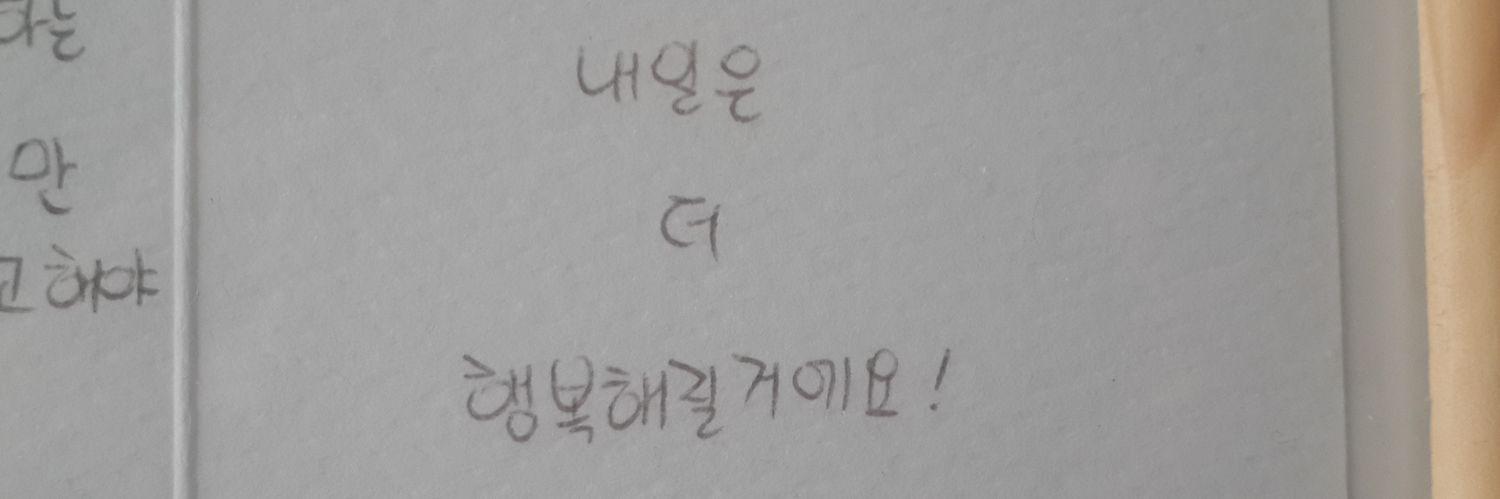 하는
안
고해야
내일은
더
행복해질거에요!